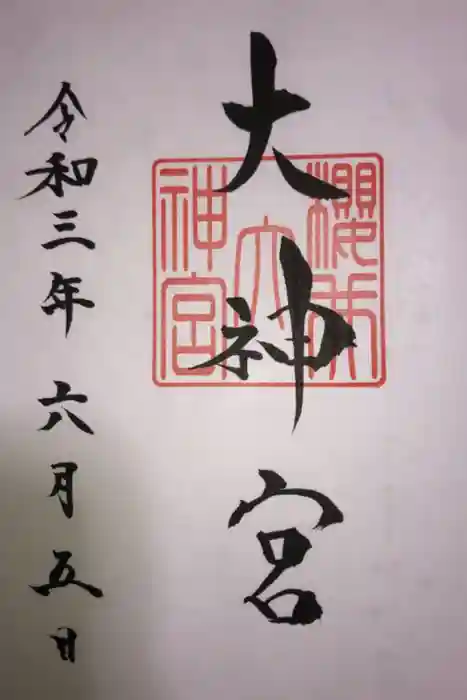 大神宮
櫻木
大
神宮
令和三年 六月五日